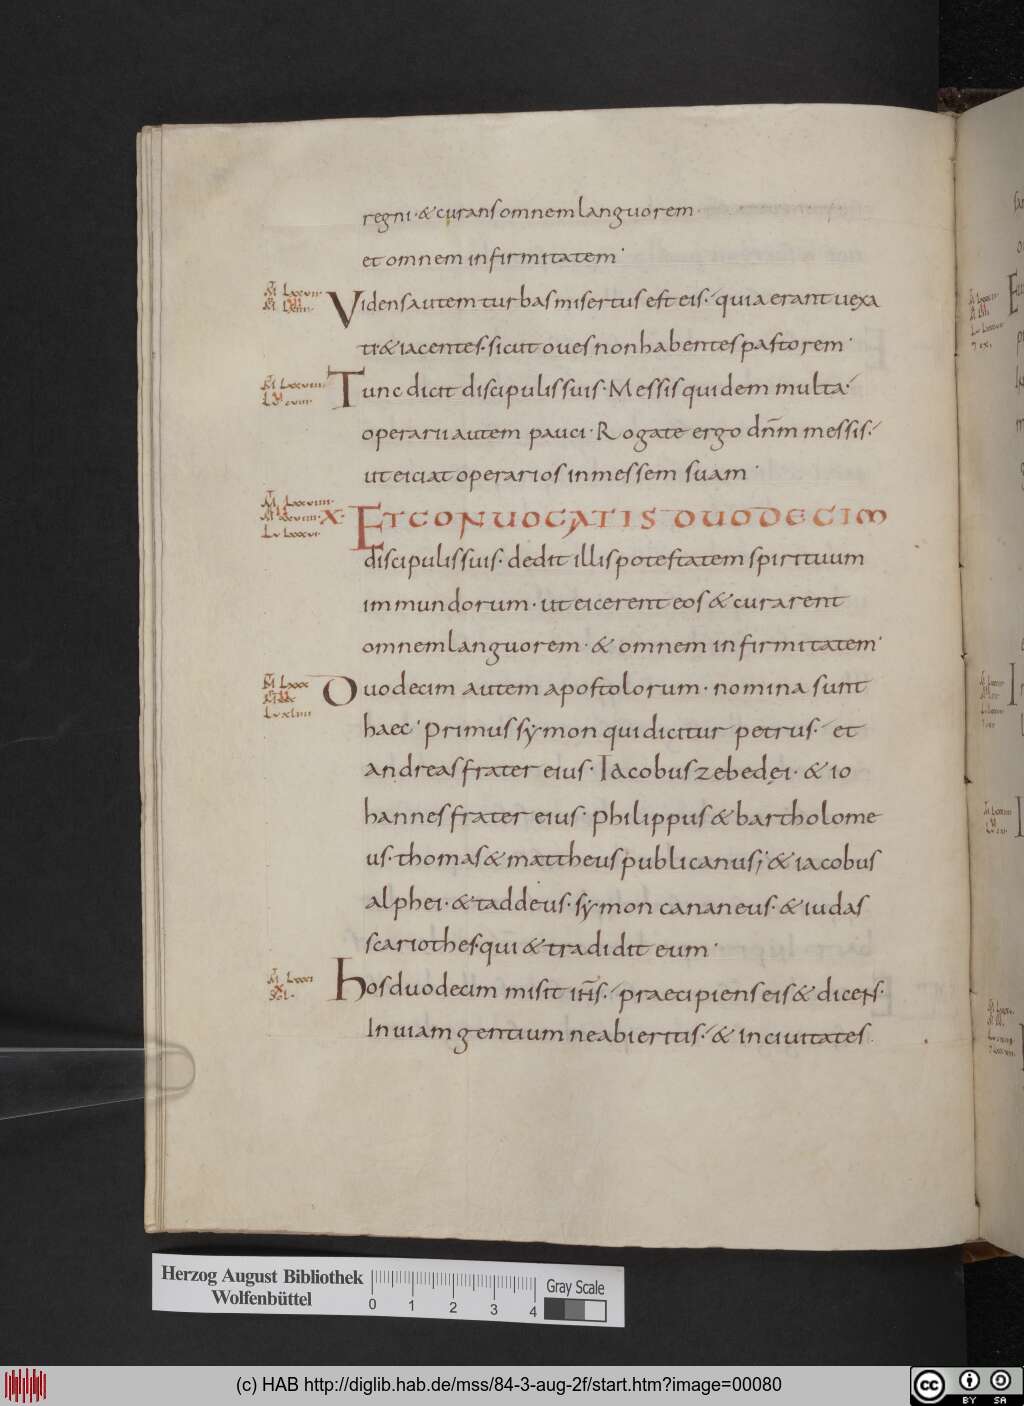 regni · & curans omnem languorem
et omnem infirmitatem·
Videns autem turbas misertus est eis · quia erant uexa
ti & iacentes · sicut oues non habentes pastorem·
Tunc dicit discipulis suis · Messis quidem multa ·
operarii autem pauci · Rogate ergo dn̄m messis ·
ut eiciat operarios in messem suam ·
X· ET CONUOCATIS DUODECIM
discipulis suis · dedit illis potestatem spirituum
immundorum · ut eicerent eos & curarent
omnem languorem · & omnem infirmitatem·
Duodecim autem apostolorum · nomina sunt
haec · primus symon qui dicitur petrus · et
andreas frater eius · Iacobus zebedęi · & io
hannes frater eius · philippus & bartholome
us · thomas & mattheus publicanus; & iacobus
alphei · & taddeus · symon cananeus · & iudas
scariothes · qui & tradidit eum ·
Hos duodecim misit ih̄s · praecipiens eis & dicens ·
In uiam gentium ne abieritis · & in ciuitates
Herzog August Bibliothek
Wolfenbüttel
0 1 2 3 4
Gray Scale
(c) HAB http://diglib.hab.de/mss/84-3-aug-2f/start.htm?image=00080
cc BY SA